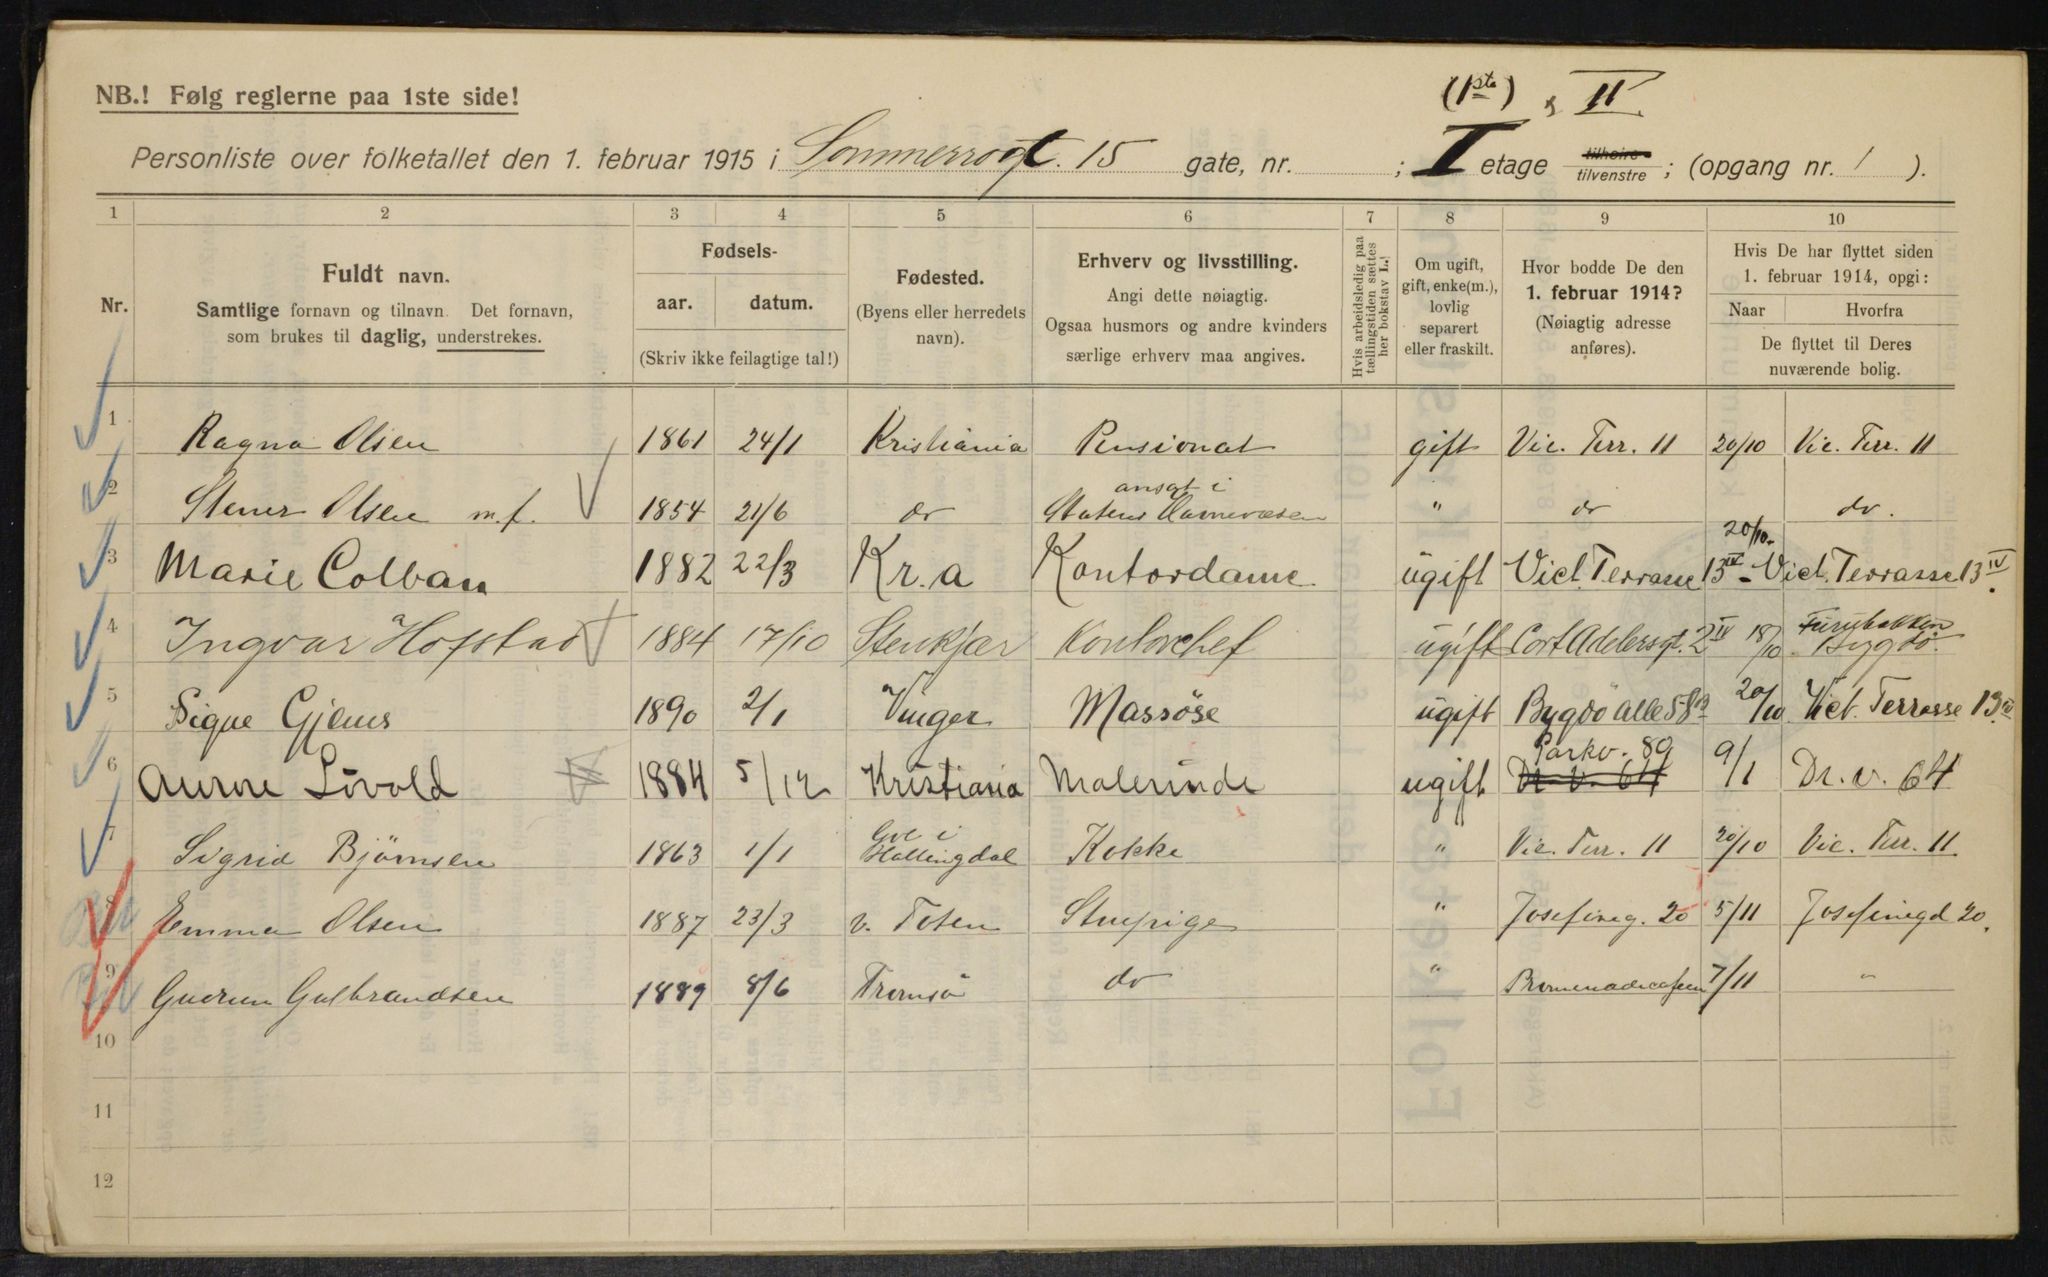 (1ste) & II.
NB.! Følg reglerne paa 1ste side!
Personliste over folketallet den 1. februar 1915 i Sommerrogt. 15 gate, nr. ; I etage tilhøire tilvenstre ; (opgang nr. 1 ).
1 2 3 4 5 6 7 8 9 10
Nr.
Fuldt navn.
Samtlige fornavn og tilnavn. Det fornavn,
som brukes til daglig, understrekes.
Fødsels-
aar. datum.
(Skriv ikke feilagtige tal!)
Fødested.
(Byens eller herredets
navn).
Erhverv og livsstilling.
Angi dette nøiagtig.
Ogsaa husmors og andre kvinders
særlige erhverv maa angives.
Hvis arbeidsledig paa
tællingstiden sættes
her bokstav L.!
Om ugift,
gift, enke(m.),
lovlig
separert
eller fraskilt.
Hvor bodde De den
1. februar 1914?
(Nøiagtig adresse
anføres).
Hvis De har flyttet siden
1. februar 1914, opgi:
Naar Hvorfra
De flyttet til Deres
nuværende bolig.
1 Ragna Olsen 1861 24/1 Kristiania Pensionat gift Vic. Terr. 11 20/10 Vic. Terr. 11
2 Stener Olsen m.f. 1854 21/6 do ansat i Statens Havnevæsen " do do.
3 Marie Colban 1882 22/3 Kr.a Kontordame ugift Vict. Terrasse 13 IV 20/10 - Vict. Terrasse 13 IV.
4 Ingvar Hofstad 1884 17/10 Stenkjær Kontorchef ugift Cort Adelersgt. 2 IV 18/10 Furubakken Bygdö.
5 Signe Gjems 1890 2/1 Vinger Massöse ugift Bygdö alle 58 20/10 Vict. Terrasse 13 IV
6 Aurore Lövold 1884 5/12 Kristiania Malerinde ugift Parkv. 89 Dr. v. 64 9/1 Dr. v. 64
7 Sigrid Bjørnsen 1863 1/1 Gol i Hallingdal Kokke " Vic. Terr. 11 20/10 Vic. Terr. 11.
8 Emma Olsen 1887 23/3 v. Toten Stuepige " Josefineg. 20 5/11 Josefinegd 20.
9 Gudrun Gulbrandsen 1889 8/6 Tromsö do " Promenadecafeen 7/11 "
10
11
12